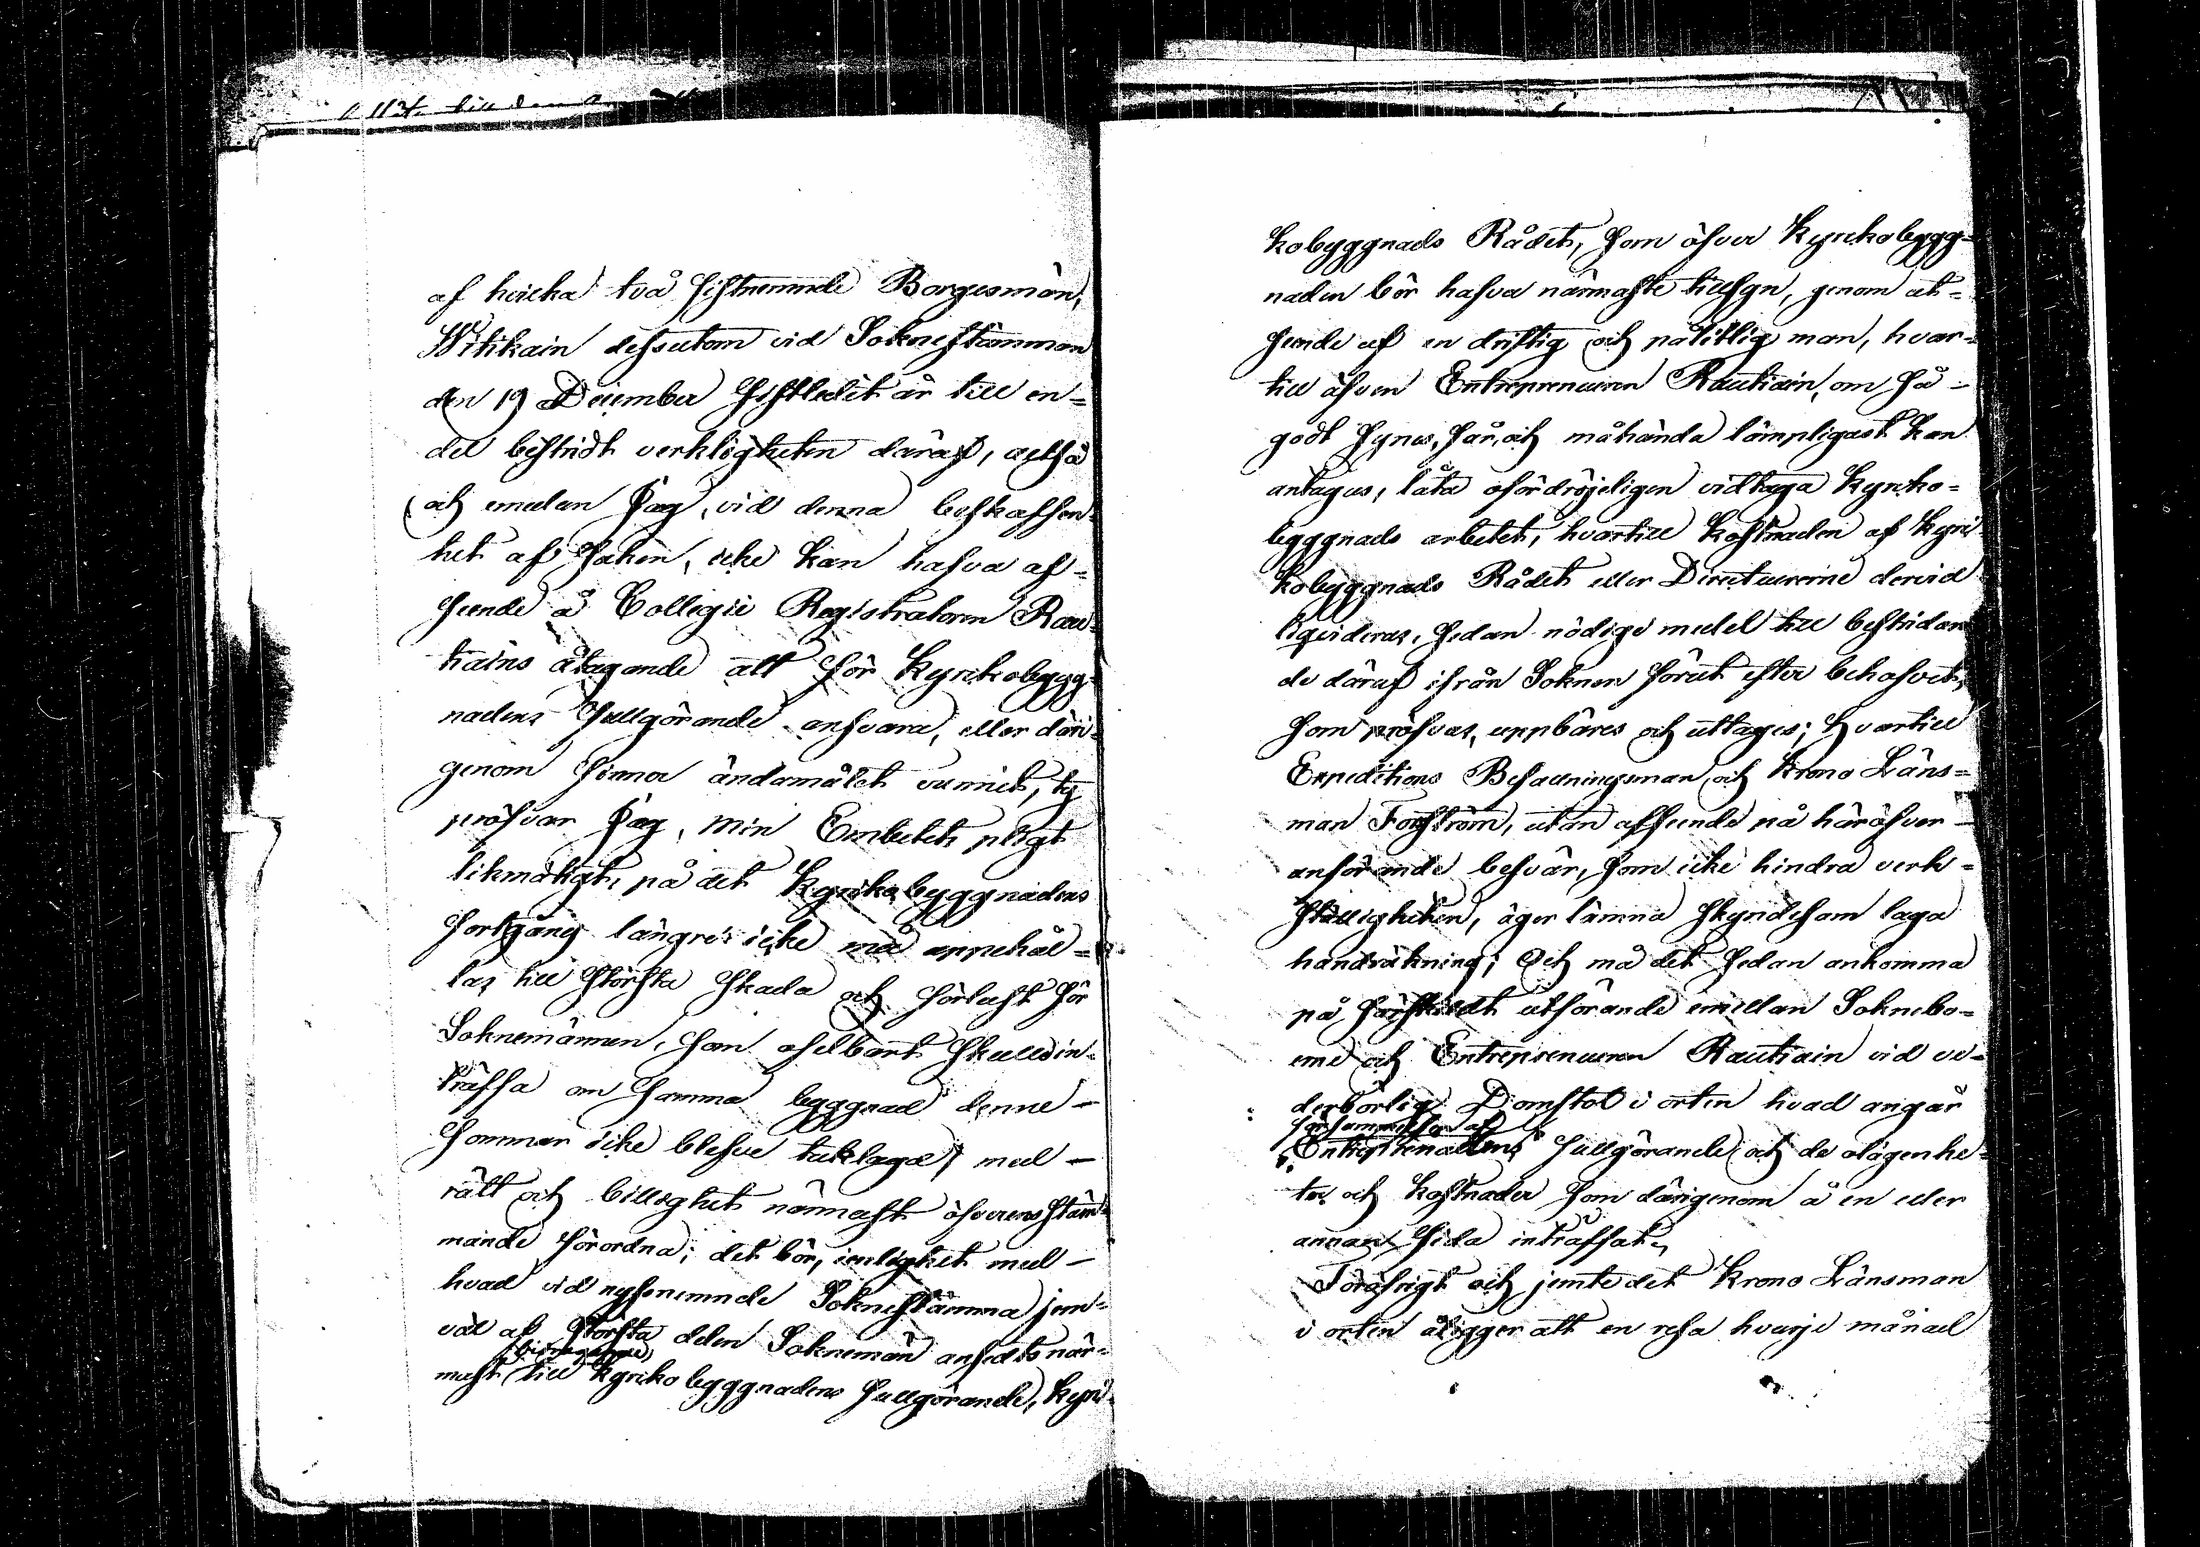 af hvilka två sistnemnde Borgesmän,
Witikain dessutom vid Soknestämman
den 19 December sistledit år till en-
del bestridt verkligheten däraf, altså
och emedan Jag, vid denna beskaffen-
het af saken, icke kan hafva af-
seende å Collegii Registratorn Rau-
tiains åtagande att för Kyrkobygg-
nadens fullgörande ansvara, eller däri-
genom finna ändamålet vunnit, ty
pröfvar Jag, min Embetets pligt
likmätigt, på det Kyrkobyggnadens
fortgång längre icke må uppehål-
las till största skada och förlust för
Soknemännen, som ofelbart skulle in-
träffa om samma byggnad denne-
sommar icke blefve taklagd, med-
rätt och billighet närmast öfverensstäm-
mande förordna; det bör, i enlighet med-
hvad vid nyssnemnde Soknestämma jem-
väl af största delen Soknemän ansedts när-
mast till Kyrkobyggnadens fullgörande, Kyr-
kobyggnads Rådet, som öfver Kyrkobygg-
naden bör hafva närmaste tillsyn, genom at-
seende af en driftig och pålitlig man, hvar-
till äfven Entreprenueren Rautiain, om så-
godt synes, får, och måhända lämpligast kan
antagas, låta ofördröjeligen vidtaga Kyrko-
byggnads arbetet, hvartill kostnaden af Kyr-
kobyggnads Rådet eller Directeurerne dervid
liqvideras, sedan nödige medel till bestridan-
de däraf ifrån Soknen förut efter behofvet,
som pröfvas, uppbäres och uttages; hvartill
Expeditions Befallningsman och Krono Läns-
man Forsström, utan afseende på häröfver-
anförande besvär, som icke hindra verk-
ställigheten, äger lämna skyndesam laga
handräkning; Och må det sedan ankomma
på särskildt utförande emellan Soknebo-
erne och Entreprenueren Rautiain vid ve-
derbörlig Domstol i orten hvad angår
försummelsen af
Entreprenadens fullgörande och de olägenhe-
ter och kostnader som därigenom å en eller
annan sida inträffat.
Föröfrigt och jemte det Krono Länsman
i orten åligger att en resa hvarje månad